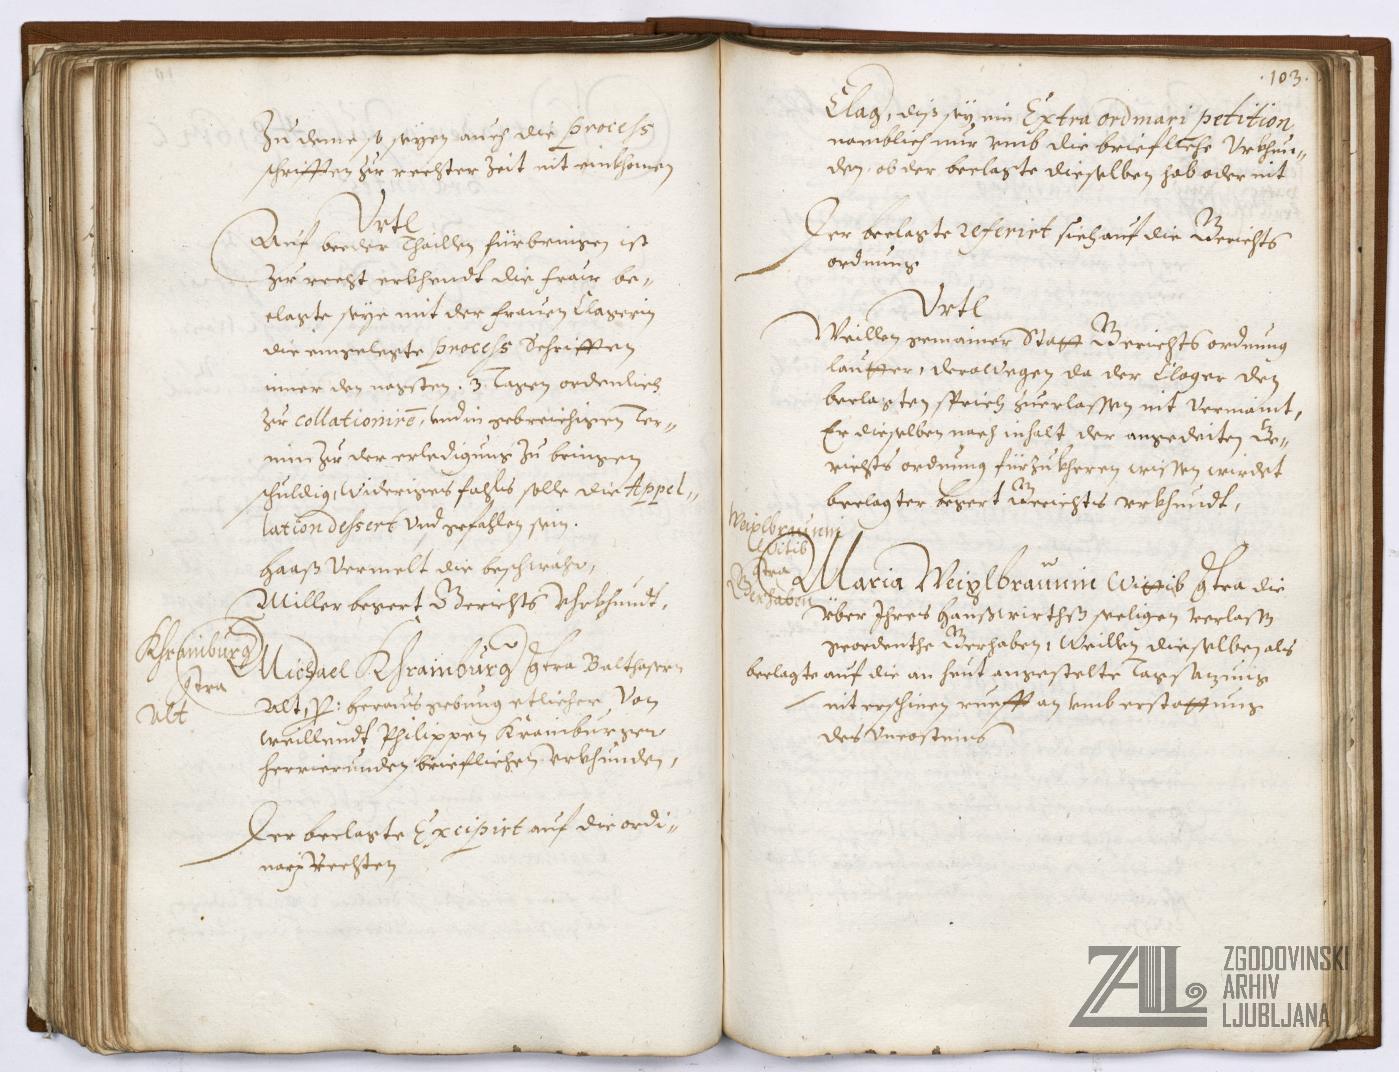 Zu deme, so seyen auch die process
schrifften zur rechter Zeit nit einkhomen
Vrtl
Auf beeder Thaillen fürbringen ist
zur recht erkhendt die fraw be-
clagte seye mit der frauen Clagerin
die eingelegte process Schrifften
inner den negsten .3. Tagen ordenlich
zur collationirn, und in gebreichigen Ter-
min zur der erledigung zu bringen
schuldig, widriges fahls solle die Appel-
lation dessert und gefahlen sein.
Haaß vermelt die beschwähr,
Miller begert Gerichts Vhrkhundt,
Khrainburg
contra
Alt
Michael Khrainburg contra Balthasern
Alt, per: herausgebung etlicher, von
weillendt Philippen Krainburger
herrierunden brieflichen vrkhunden,
Der beclagte Excipirt auf die ordi-
nari Rechten
.103.
Clag, diß sey ein Extraordinari petition
nemblich nur vmb die briefliche Vrkhun-
den, ob der beclagte dieselben hab oder nit
Der beclagte referirt sich auf die Gerichts
ordnung
Vrtl
Weillen gemainer Statt Gerichts ordnung
lautter, derowegen da der Clager den
beclagten sprich zuerlassen nit vermaint,
Er dieselben nach inhalt der angedeiten Ge-
richts ordnung fürzukheren wissen wirdet
beclagter begert Gerichts vrkhundt,
Weixlbraunin
Witib
contra
Gerhaben
Maria Weixlbraunin Wittib contra die
über Ihres Haußwirthß seeligen verlass
geordenthe Gerhaben, Weillen dieselben als
beclagte auf die an heut angestelte Tagsatzung
nit erschinen ruefft an vmb erstattung
des Vncostens
ZGODOVINSKI
ARHIV
LJUBLJANA